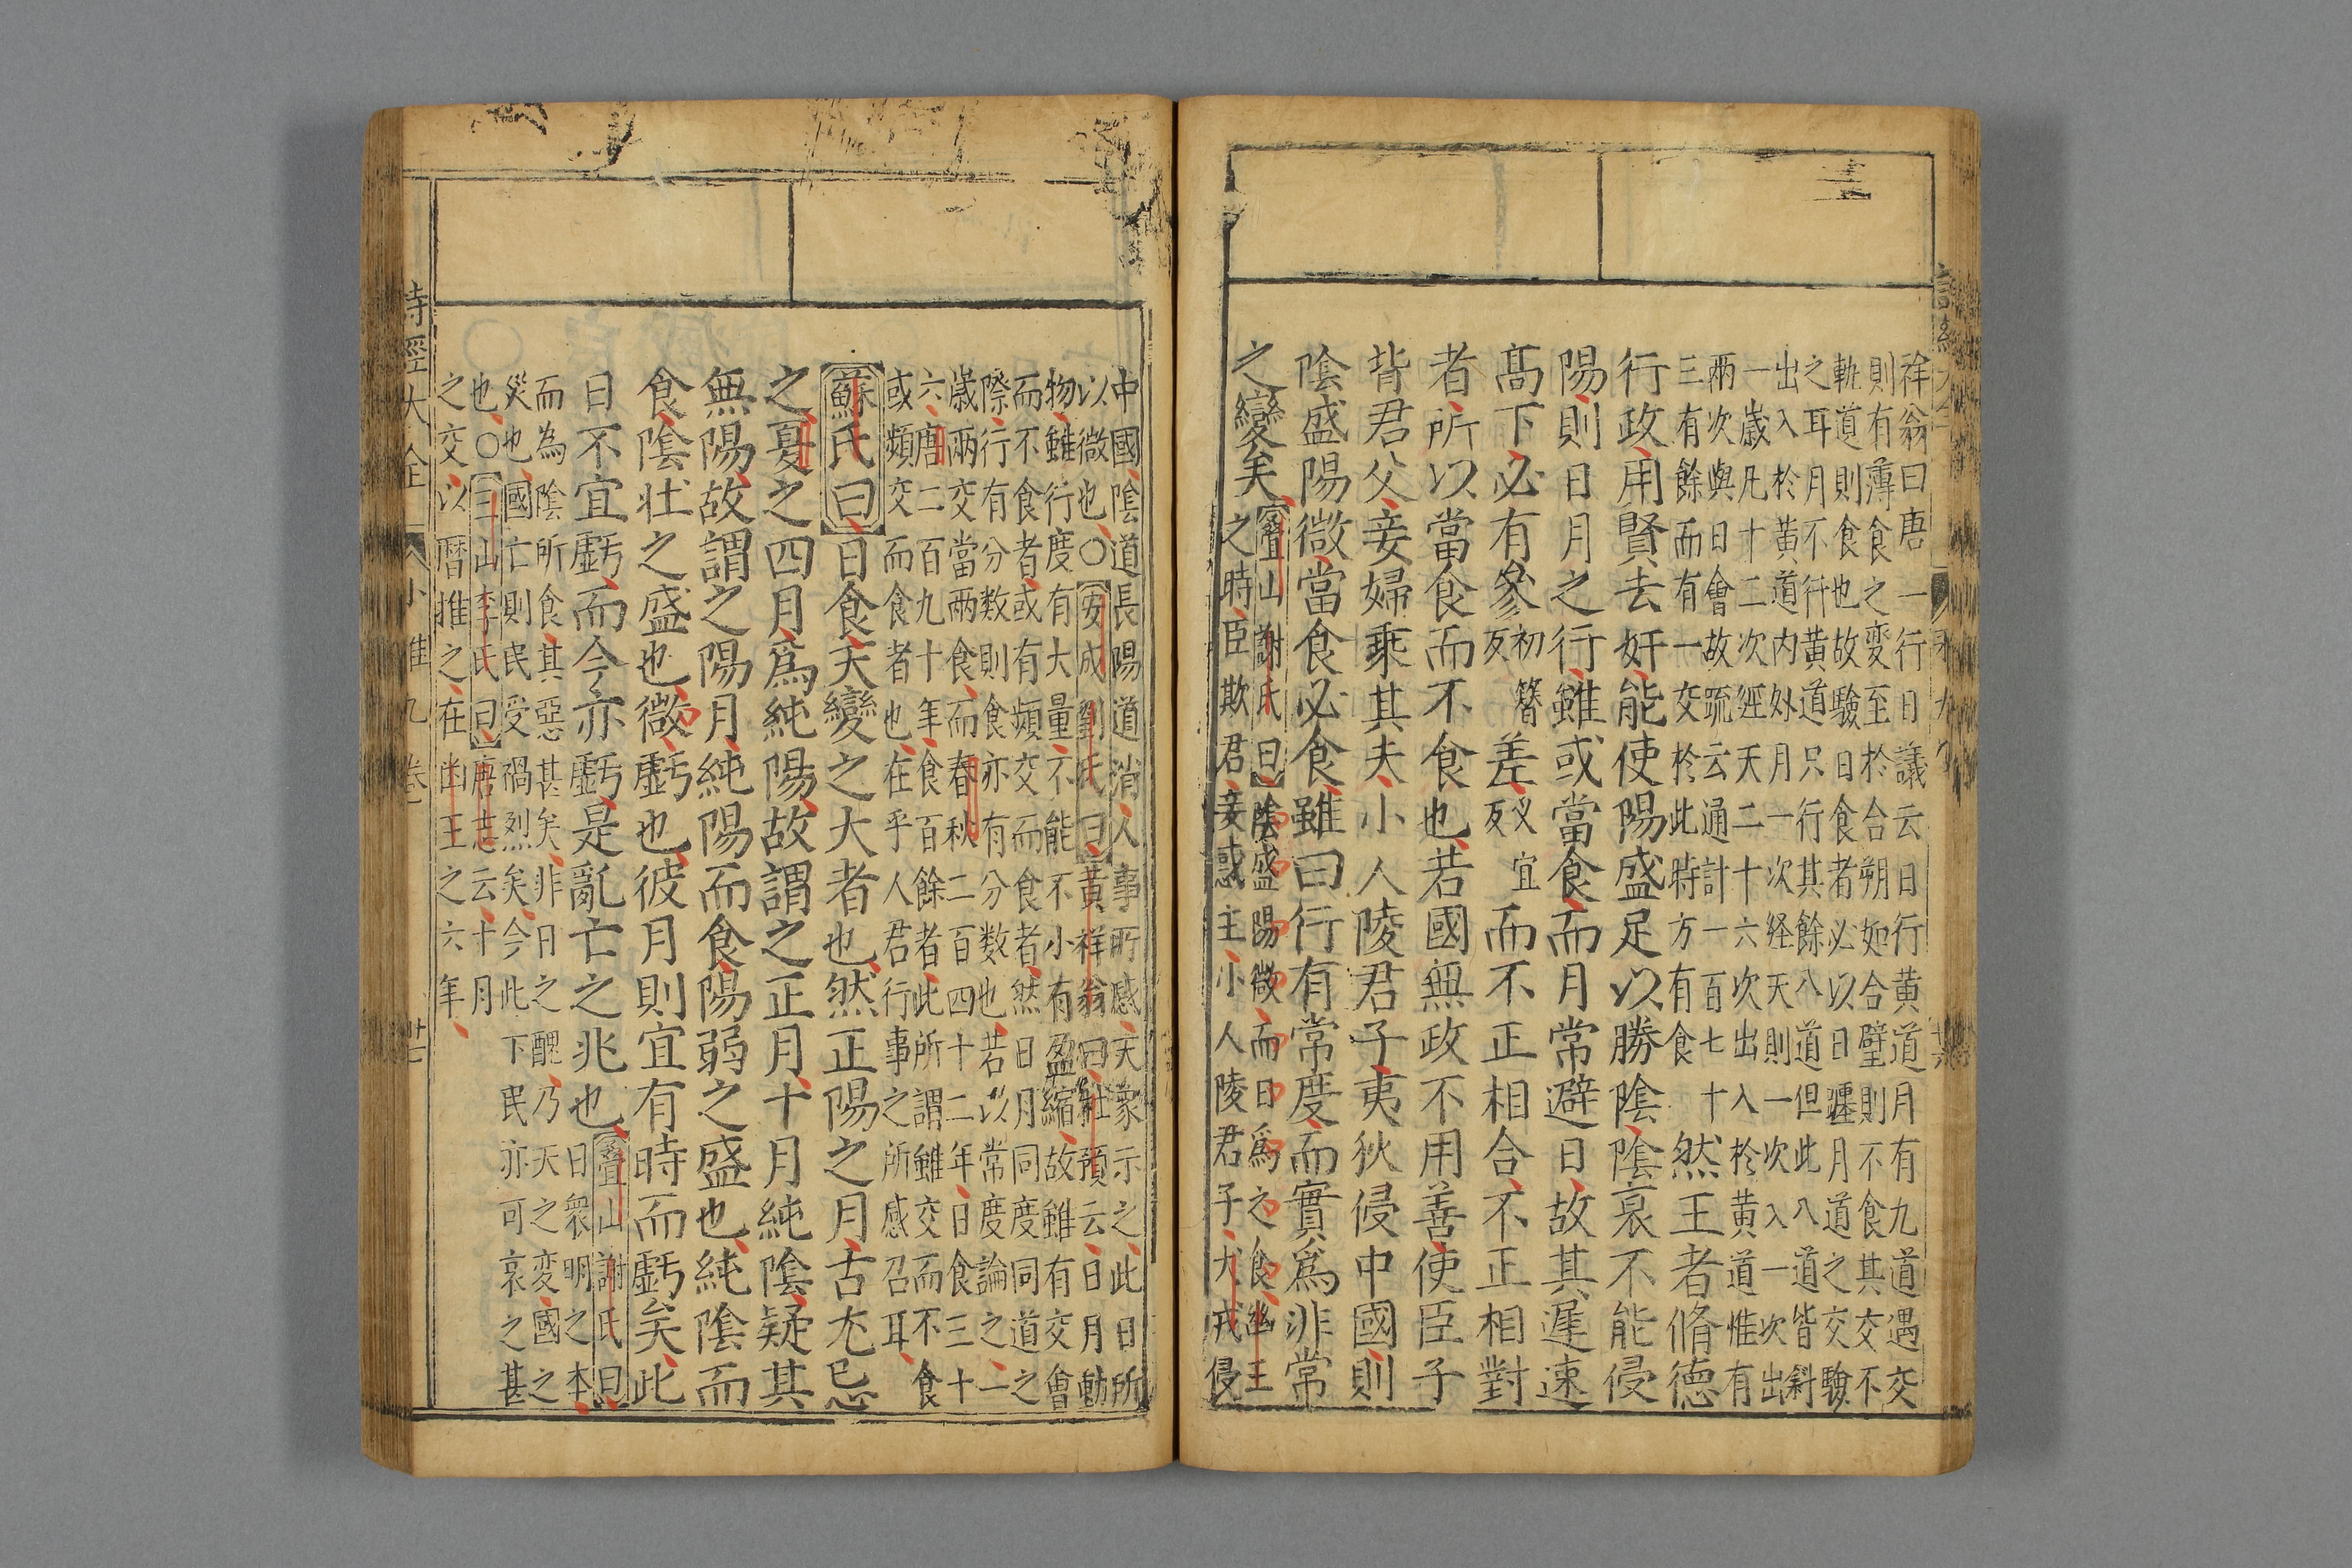 祥翁曰唐一行日議云日行黄道月有九道遇交
則有薄食之変至於合朔如合璧則不食其交不
軌道則食也故驗日食者必以日躔月道之交驗
之耳月不行黄道只行其餘八道但此八道皆斜
出入於黄道内外月一次経天則一次入一次出
一歳凡十二次經天二十六次出入於黄道惟有
兩次與日會故䟽云通計一百七十
三有餘而有一交於此時方有食
然王者脩德
行政用賢去奸能使陽盛足以勝陰陰衰不能侵
陽則日月之行雖或當食而月常避日故其遲速
高下必有參初簪反差叉宜反而不正相合不正相對
者所以當食而不食也若國無政不用善使臣子
背君父妾婦乘其夫小人陵君子夷狄侵中國則
陰盛陽微當食必食雖曰行有常度而實爲非常
之變矣
疊山謝氏曰陰盛陽微而日爲之食幽王
之時臣欺君妾惑主小人陵君子犬戎侵
中國陰道長陽道消人事所感天象示之此日所
以微也○安成劉氏曰黃祥翁曰杜預云日月動
物雖行度有大量不能不小有盈縮故雖有交會
而不食者或有頻交而食者然日月同度同道之
際行有分数則食亦有分数也若以常度論之一
歳兩交當兩食而春秋二百四十二年日食三十
六唐二百九十年食百餘者此所謂雖交而不食
或頻交而食者也在乎人君行事之所感召耳
蘇氏曰日食天變之大者也然正陽之月古尤忌
之夏之四月爲純陽故謂之正月十月純陰疑其
無陽故謂之陽月純陽而食陽弱之盛也純陰而
食陰壯之盛也微虧也彼月則宜有時而虧矣此
日不宜虧而今亦虧是亂亡之兆也
疊山謝氏曰
日衆明之本
而為陰所食其惡甚矣非日之醜乃天之変國之
災也國亡則民受禍烈矣今此下民亦可哀之甚
也○三山李氏曰唐志云十月
之交以曆推之在幽王之六年
詩經大全 小雅九卷 廿七